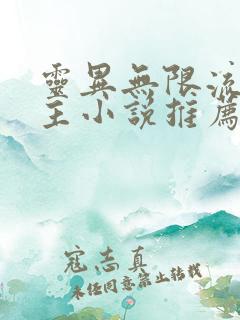 靈異無限流
主小說推薦
寇志真
未經同意禁止轉載